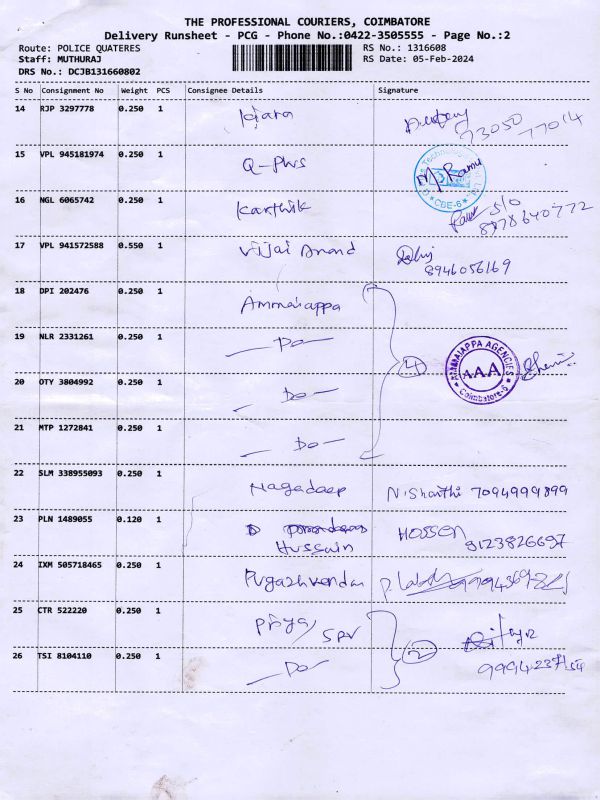 THE PROFESSIONAL COURIERS, COIMBATORE
Delivery Runsheet - PCG - Phone No.:0422-3505555 - Page No.:2
Route: POLICE QUATERES RS No.: 1316608
Staff: MUTHURAJ RS Date: 05-Feb-2024
DRS No.: DCJB131660802
S No Consignment No Weight PCS Consignee Details Signature
14 RJP 3297778 0.250 1 73050 77014
15 VPL 945181974 0.250 1 Q-Plus M. Ramu CBE-6
16 NGL 6065742 0.250 1 Karthik S/o
17 VPL 941572588 0.550 1 Vijai Anand
8946056169
18 DPI 202476 0.250 1 Ammaiappa
19 NLR 2331261 0.250 1 Do 4 AMMAIAPPA AGENCIES AAA Coimbatore-6
20 OTY 3804992 0.250 1 Do
21 MTP 1272841 0.250 1 Do
22 SLM 338955093 0.250 1 Nagadeep N. Shanthi 7094999899
23 PLN 1489055 0.120 1 Hussain HOSSEN
9123826697
24 IXM 505718465 0.250 1 Pugazhvendan
25 CTR 522220 0.250 1 Priya SPV 2
26 TSI 8104110 0.250 1 Do